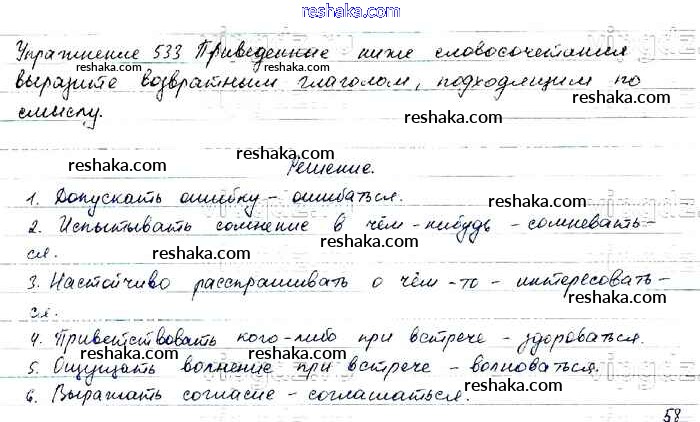 reshaka.com
Упражнение 533 Приведенные ниже словосочетания
reshaka.com reshaka.com
выразите возвратным глаголом, подходящим по
reshaka.com
смыслу.
reshaka.com reshaka.com
Решение.
1. Допускать ошибку - ошибаться.
reshaka.com
2. Испытывать сомнение в чём-нибудь - сомневать-
ся. reshaka.com
3. Настойчиво расспрашивать о чём-то - интересовать-
ся. reshaka.com reshaka.com
4. Приветствовать кого-либо при встрече - здороваться.
reshaka.com
5. Ощущать волнение при встрече - волноваться.
reshaka.com
6. Выражать согласие - соглашаться.
58
reshaka.com